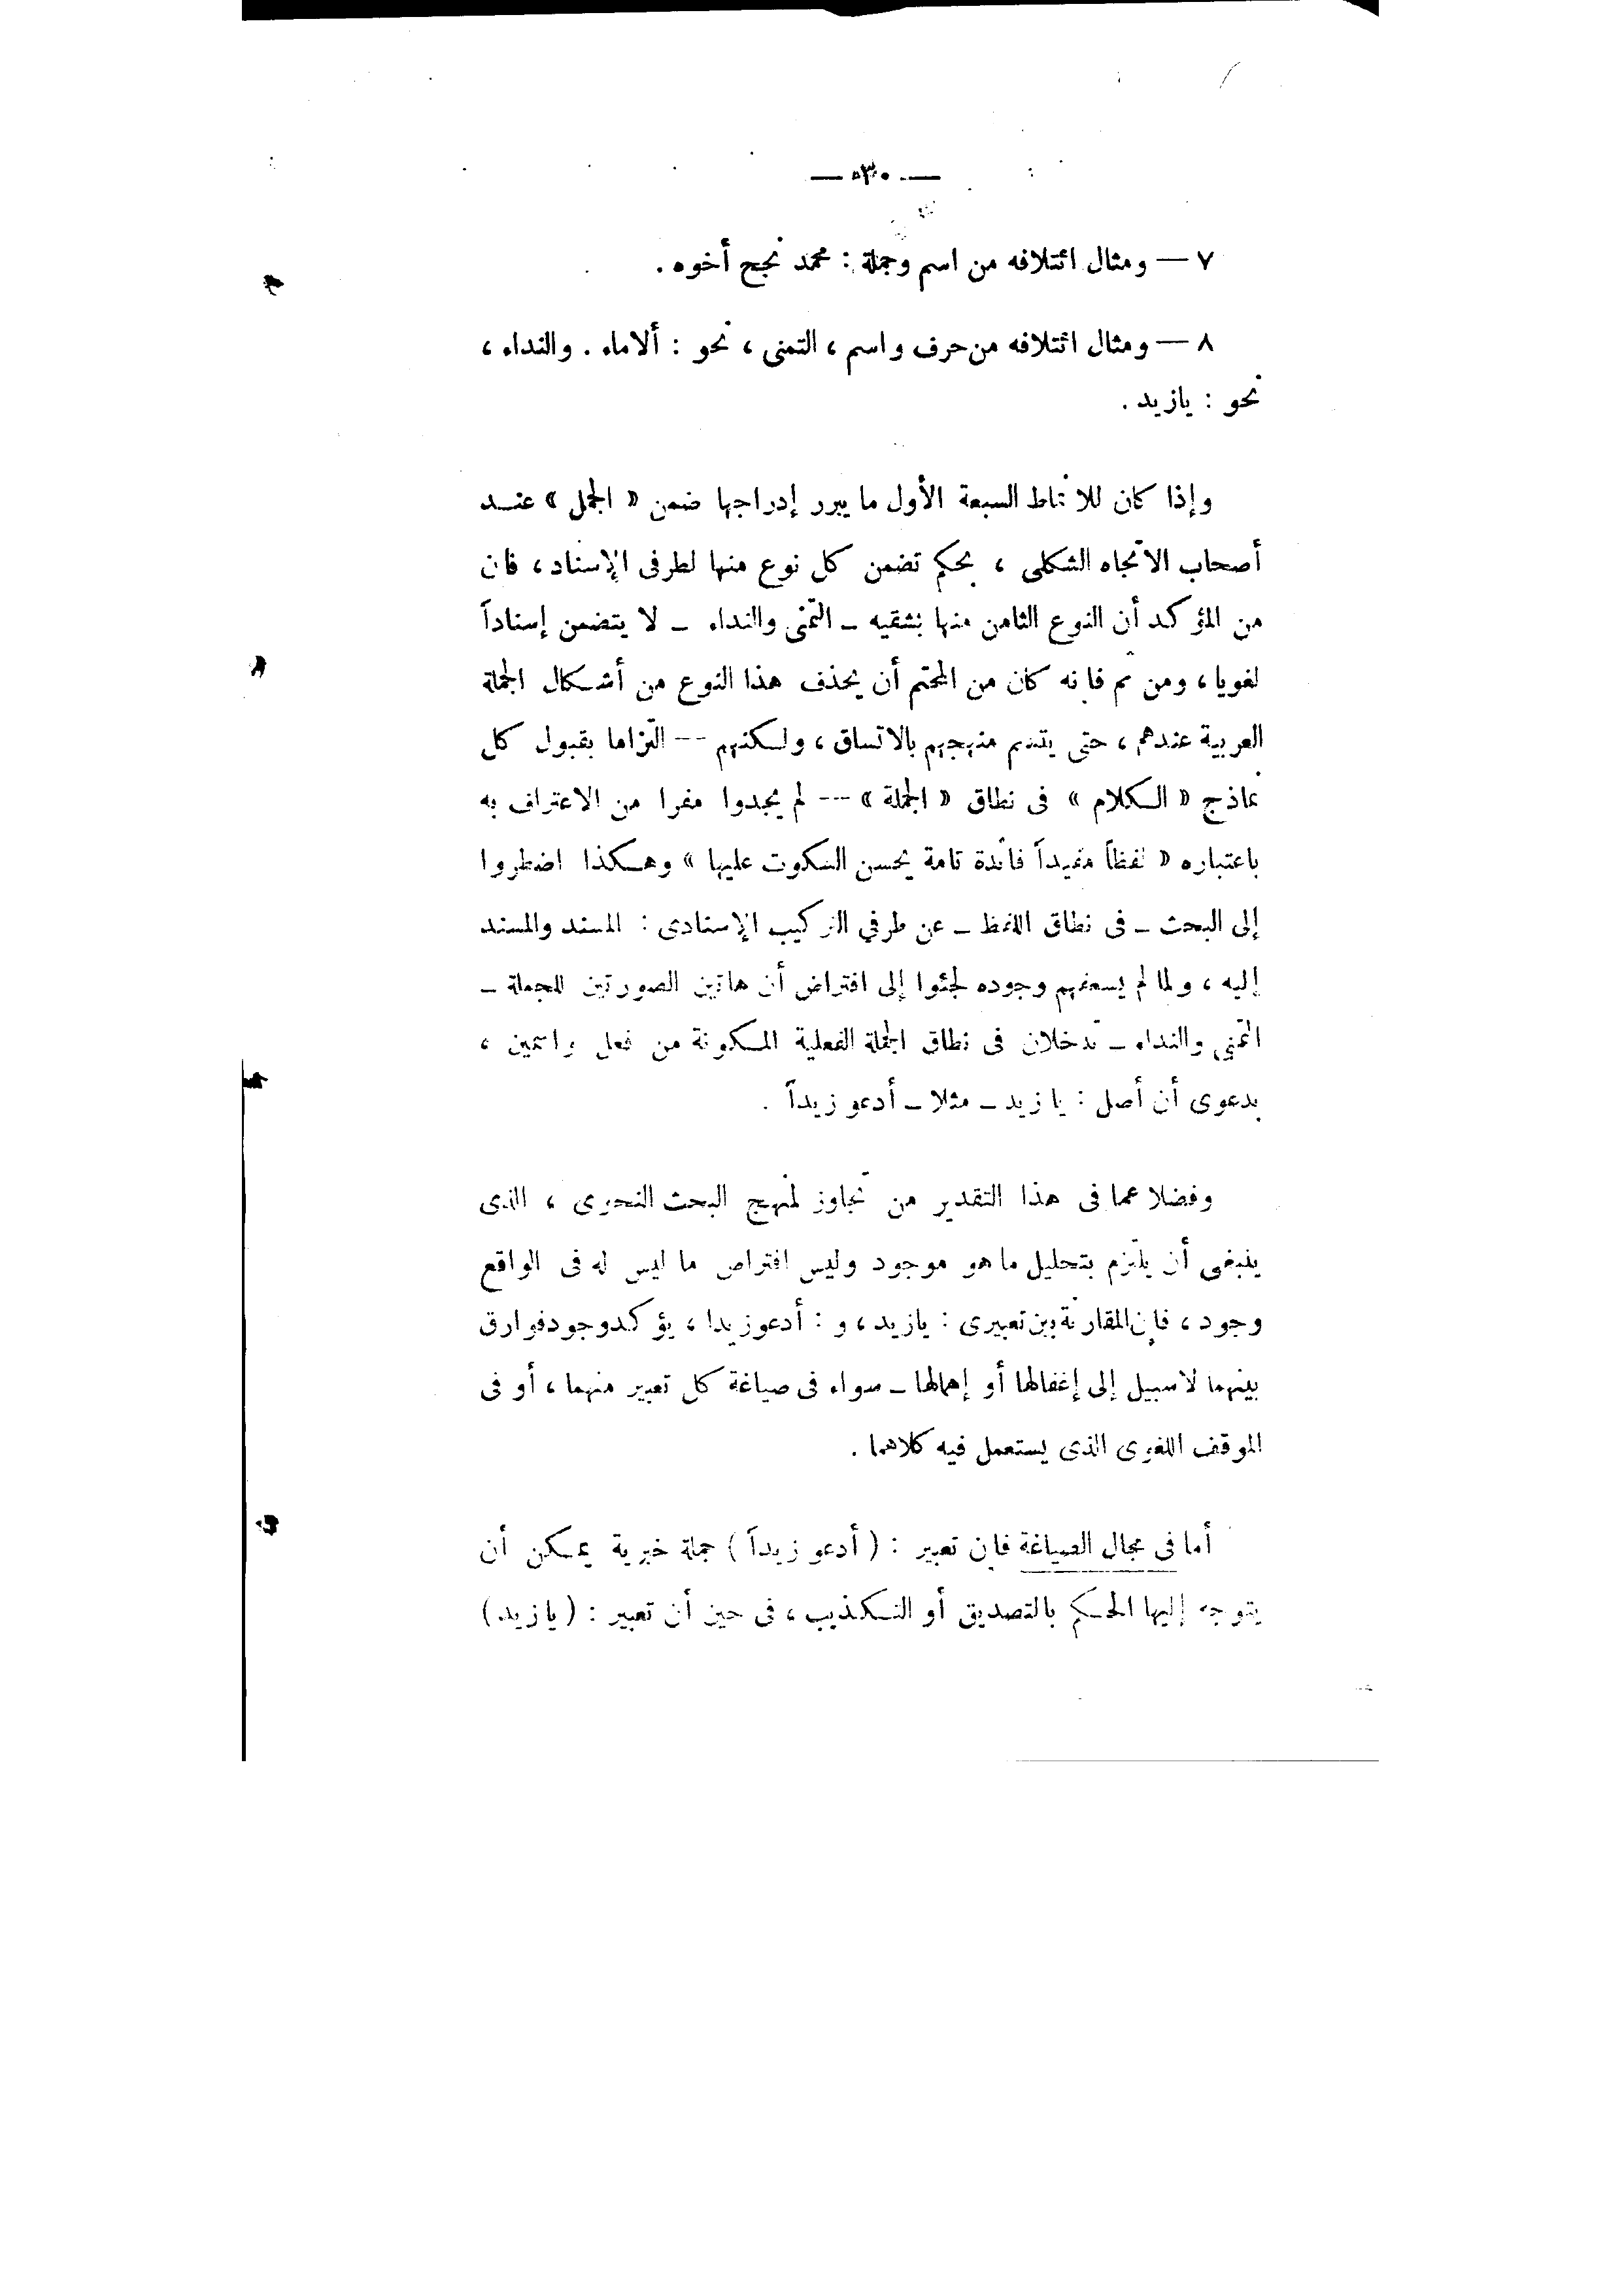 — ٥٣٠ —
٧ — ومثال ائتلافه من اسم وجملة : محمد نجح أخوه .
٨ — ومثال ائتلافه من حرف واسم ، التمنى ، نحو : ألا ماء . والنداء ،
نحو : يازيد .
وإذا كان للأنماط السبعة الأول ما يبرر إدراجها ضمن « الجمل » عند
أصحاب الاتجاه الشكلى ، بحكم تضمن كل نوع منها لطرفى الإسناد ، فان
من المؤكد أن النوع الثامن منها بشقيه – التمنى والنداء – لا يتضمن إسناداً
لغويا ، ومن ثم فانه كان من المحتم أن يحذف هذا النوع من أشكال الجملة
العربية عندهم ، حتى يتسم منهجهم بالاتساق ، ولكنهم -- التزاما بقبول كل
نماذج « الكلام » فى نطاق « الجملة » --- لم يجدوا مفرا من الاعتراف به
باعتباره « لفظاً مفيداً فائدة تامة يحسن السكوت عليها » وهكذا اضطروا
إلى البحث – فى نطاق اللفظ – عن طرفي التركيب الإسنادى : المسند والمسند
إليه ، ولما لم يسعفهم وجوده لجئوا إلى افتراض أن هاتين الصورتين للجملة –
التمنى والنداء – تدخلان فى نطاق الجملة الفعلية المكونة من فعل واسمين ،
بدعوى أن أصل : يا زيد – مثلا – أدعو زيداً .
وفضلا عما فى هذا التقدير من تجاوز لمنهج البحث النحوى ، الذى
ينبغى أن يلتزم بتحليل ما هو موجود وليس افتراص ما ليس له فى الواقع
وجود ، فإن المقارنة بين تعبيرى : يازيد ، و : أدعو زيدا ، يؤكد وجود فوارق
بينهما لا سبيل إلى إغفالها أو إهمالها – سواء فى صياغة كل تعبير منهما ، أو فى
الموقف اللغوى الذى يستعمل فيه كلاهما .
أما فى مجال الصياغة فإن تعبير : ( أدعو زيداً ) جملة خبرية يمكن أن
يتوجه إليها الحكم بالتصديق أو التكذيب ، فى حين أن تعبير : ( يا زيد )